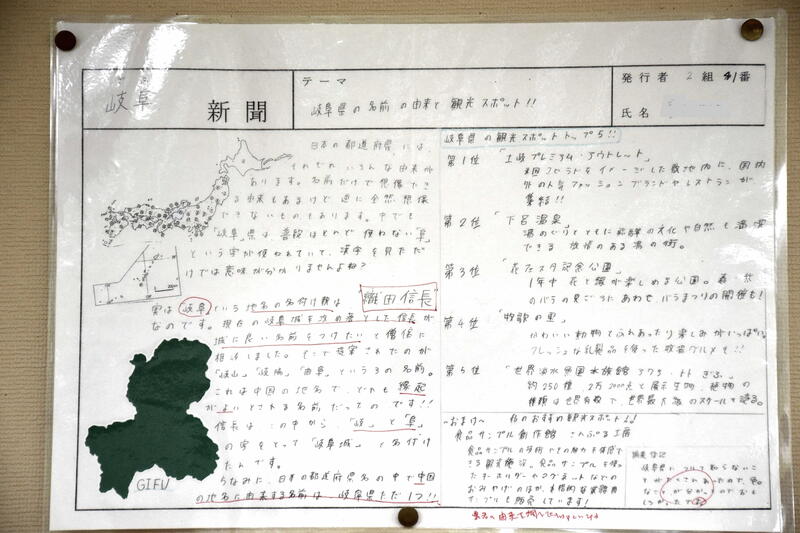 岐阜
新聞
テーマ
岐阜県の名前の由来と観光スポット!!
発行者 2組41番
氏名
日本の都道府県には、
それぞれいろんな由来が
あります。名前だけで想像でき
る由来もあるけど逆に全然想像
できないものもあります。中でも
「岐阜」県は普段ほとんど使わない「阜」
という字が使われていて、漢字を見ただ
けでは意味が分かりませんよね?
実は岐阜という地名の名付け親は 織田信長
なのです。現在の岐阜城を攻め落とした信長が
城に良い名前をつけたいと僧侶に
相談しました。そこで提案されたのが
「岐山」「岐陽」「曲阜」という3つの名前。
これは中国の地名で、どれも縁起
がよいとされる名前だってのです!!
信長はこの中から、「岐」と「阜」
の字をとって「岐阜城」と名付け
たんです。
ちなみに、日本の都道府県名の中で中国
の地名に由来する名前は岐阜県ただ1つ!!
GIFU
岐阜県の観光スポットトップ5!!
第1位 「土岐プレミアム・アウトレット」
をイメージした敷地内に、国内
外の人気ファッションブランドやレストランが
集結!!
第2位 「下呂温泉」
湯めぐりとともに飛騨の文化や自然も満喫
できる 情のある湯の街。
第3位 「花フェスタ記念公園」
1年中 花と緑が楽しめる公園。春 秋
のバラの見ごろにあわせ バラまつりの開催も!
第4位 「牧歌の里」
かわいい動物とふれあったり楽しみがいっぱい。
フレッシュな乳製品を使った牧場グルメも!!
第5位 「世界淡水魚園水族館 アクア・トトぎふ」
約250種 2万2000点と展示生物、植物の
種類は世界有数で、世界最大級のスケールを誇る。
~おまけ~ 私のおすすめ観光スポット!!
食品サンプル創作館 さんぷる工房
食品サンプルの
できる観光施設。食品サンプルを使っ
たキーホルダーやマグネットなどの
おみやげのほか、本格的な実物
サンプルも販売しています!
編集後記
岐阜県について知らないこ
とがたくさんあったので、